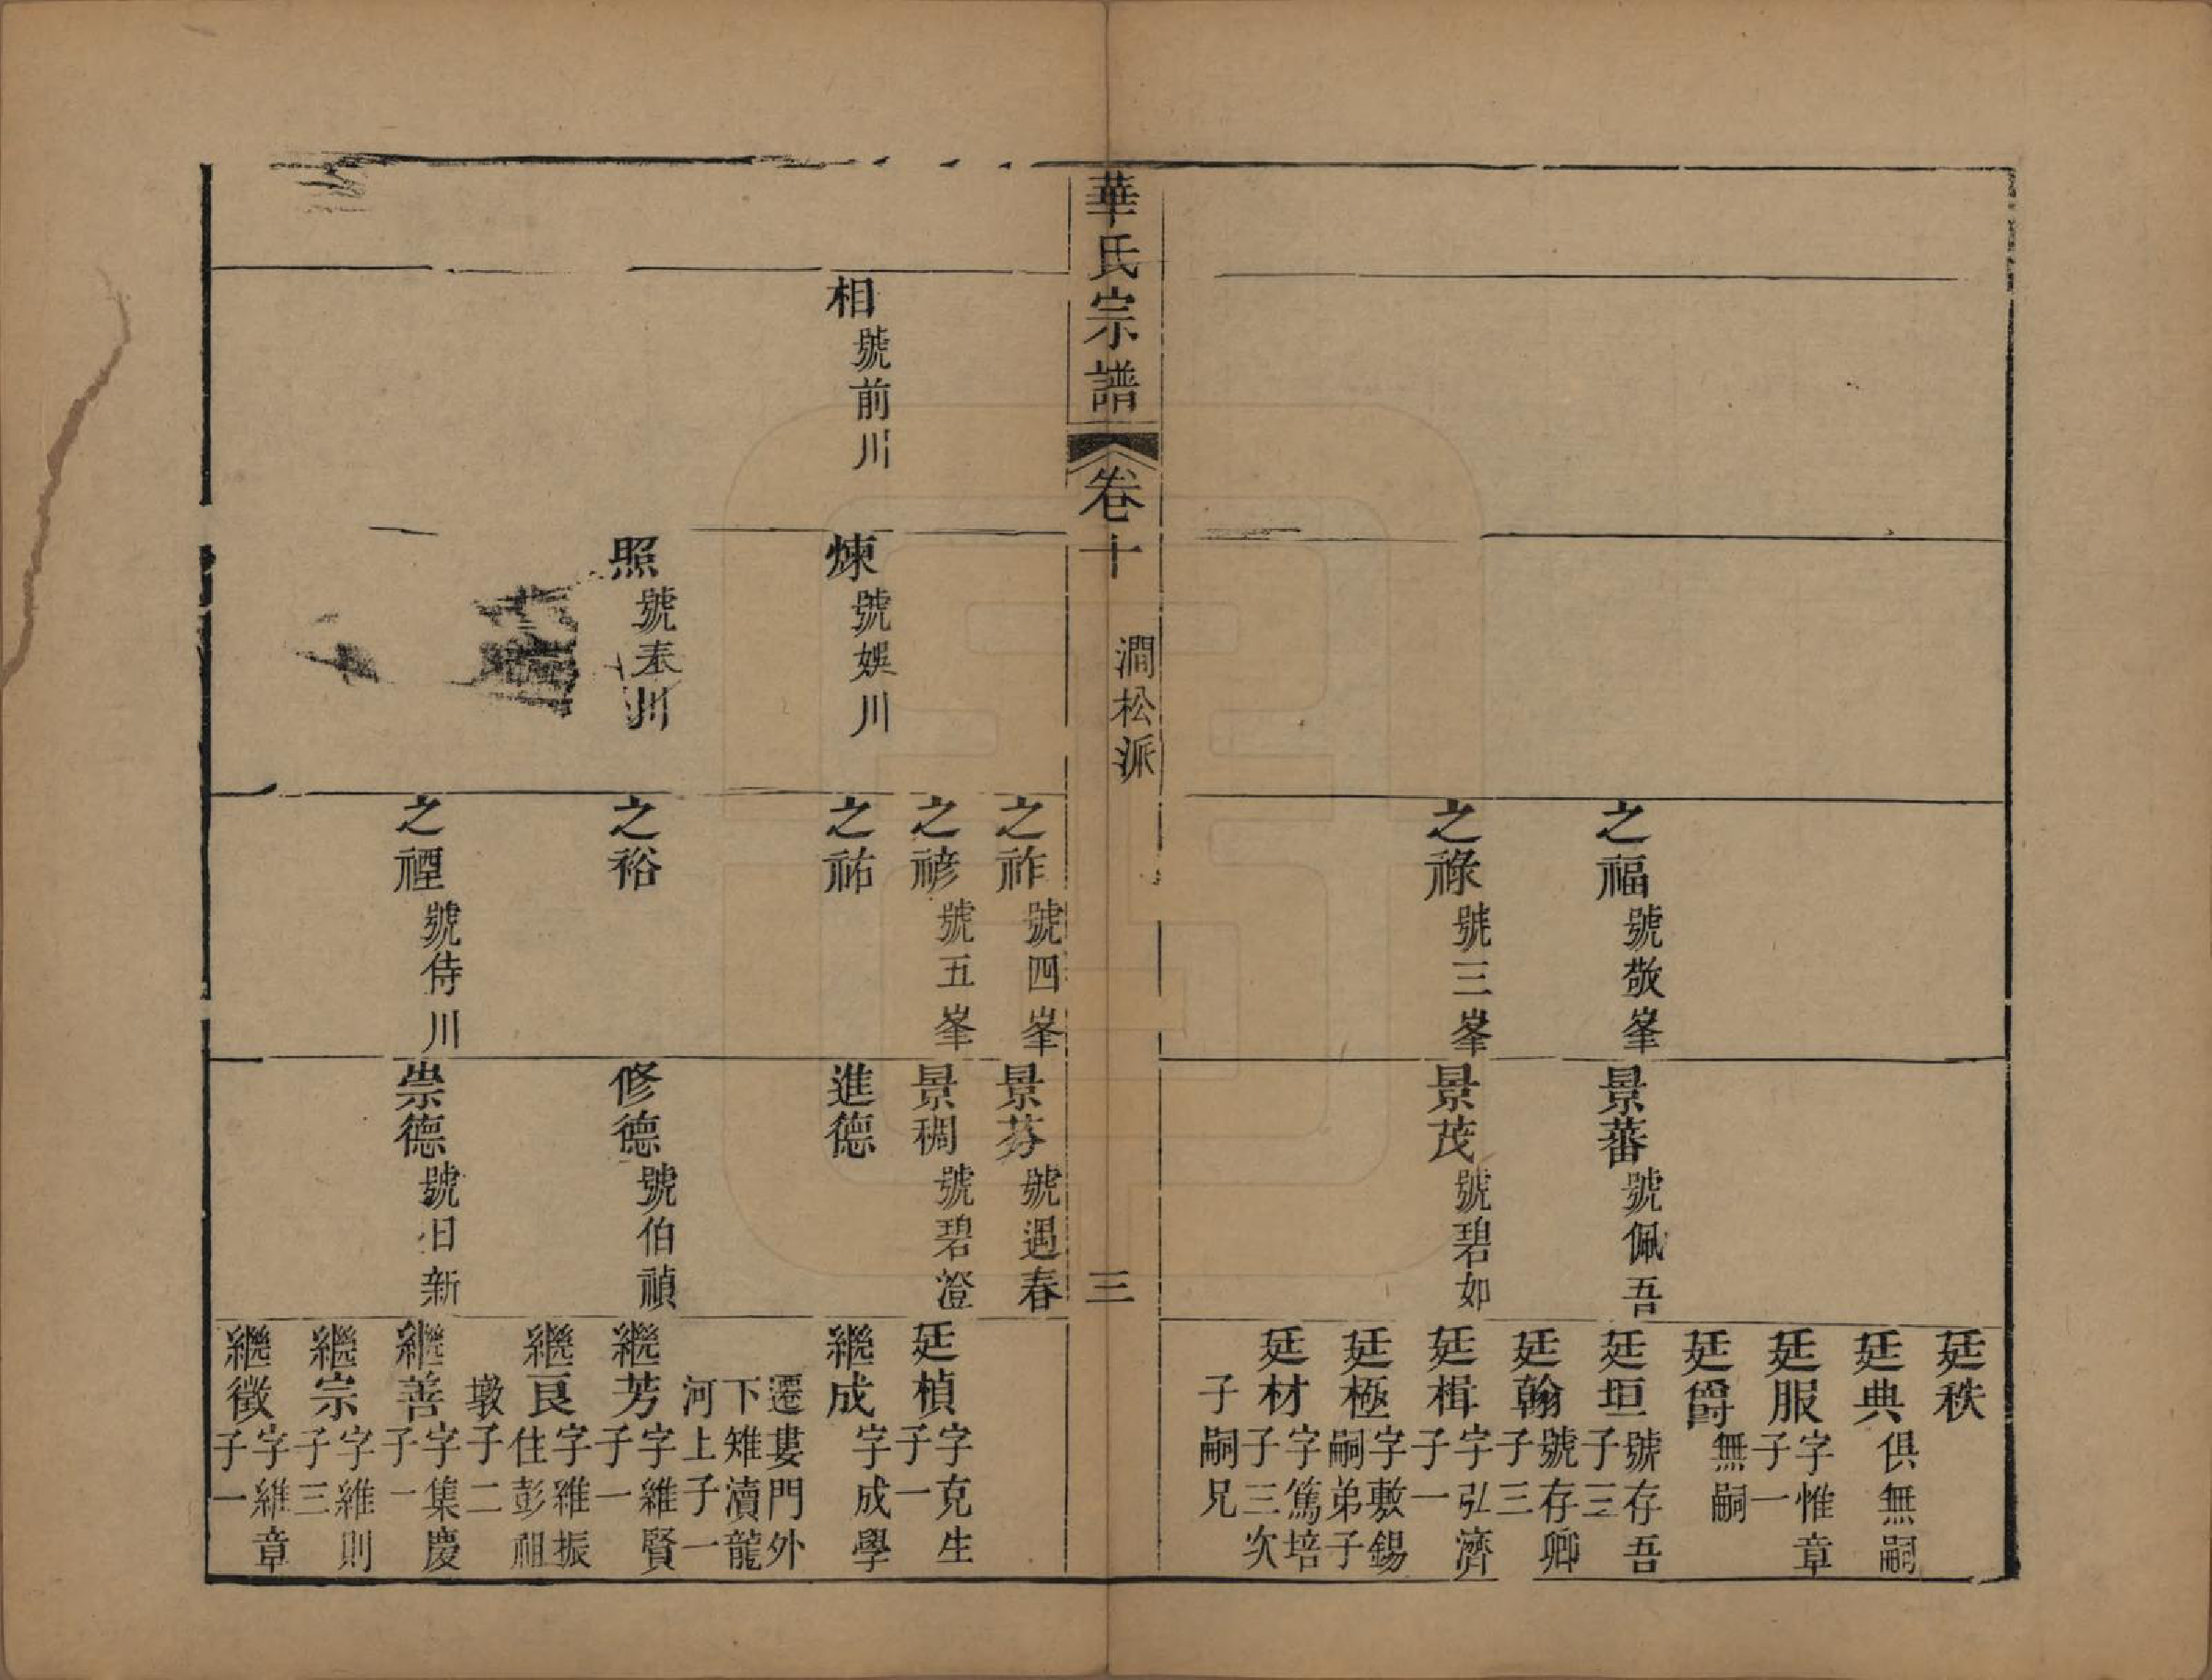 廷秩
廷典 俱無嗣
廷服 字惟章
子一
廷爵 無嗣
之福 號敬峯
景蕃 號佩吾
廷垣 號存吾
子三
廷翰 號存卿
子三
之祿 號三峯
景茂 號碧如
廷楫 字弘濟
子一
廷極 字敷錫
嗣弟子
廷材 字篤培
子三次
子嗣兄
華氏宗譜 卷十 澗松派 三
之祚 號四峯
景芬 號遇春
之𧝞 號五峯
景稠 號碧澄
廷楨 字克生
子一
相 號前川
煉 號娛川
之祐
進德
繼成 字成學
遷婁門外
下雉瀆龍
河上子一
照 號泰川
之裕
修德 號伯禎
繼芳 字維賢
子一
繼良 字維振
住彭祖
墩子二
之禋 號侍川
崇德 號日新
繼善 字集慶
子一
繼宗 字維則
子三
繼徵 字維章
子一